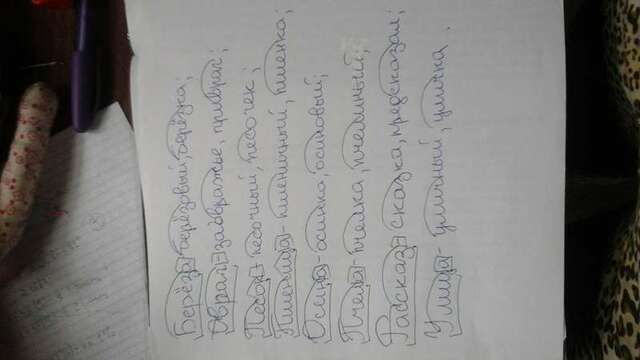 Берёза-берёзовый, берёзка;
Овраг-заовражье, приврас;
Песок-песочный, песочек;
Пшеница-пшеничный, пшенка;
Осина-осинка, осиновый;
Пчела-пчелка, пчелиный;
Рассказ-сказка, предсказал;
Улица-уличный, уличка.